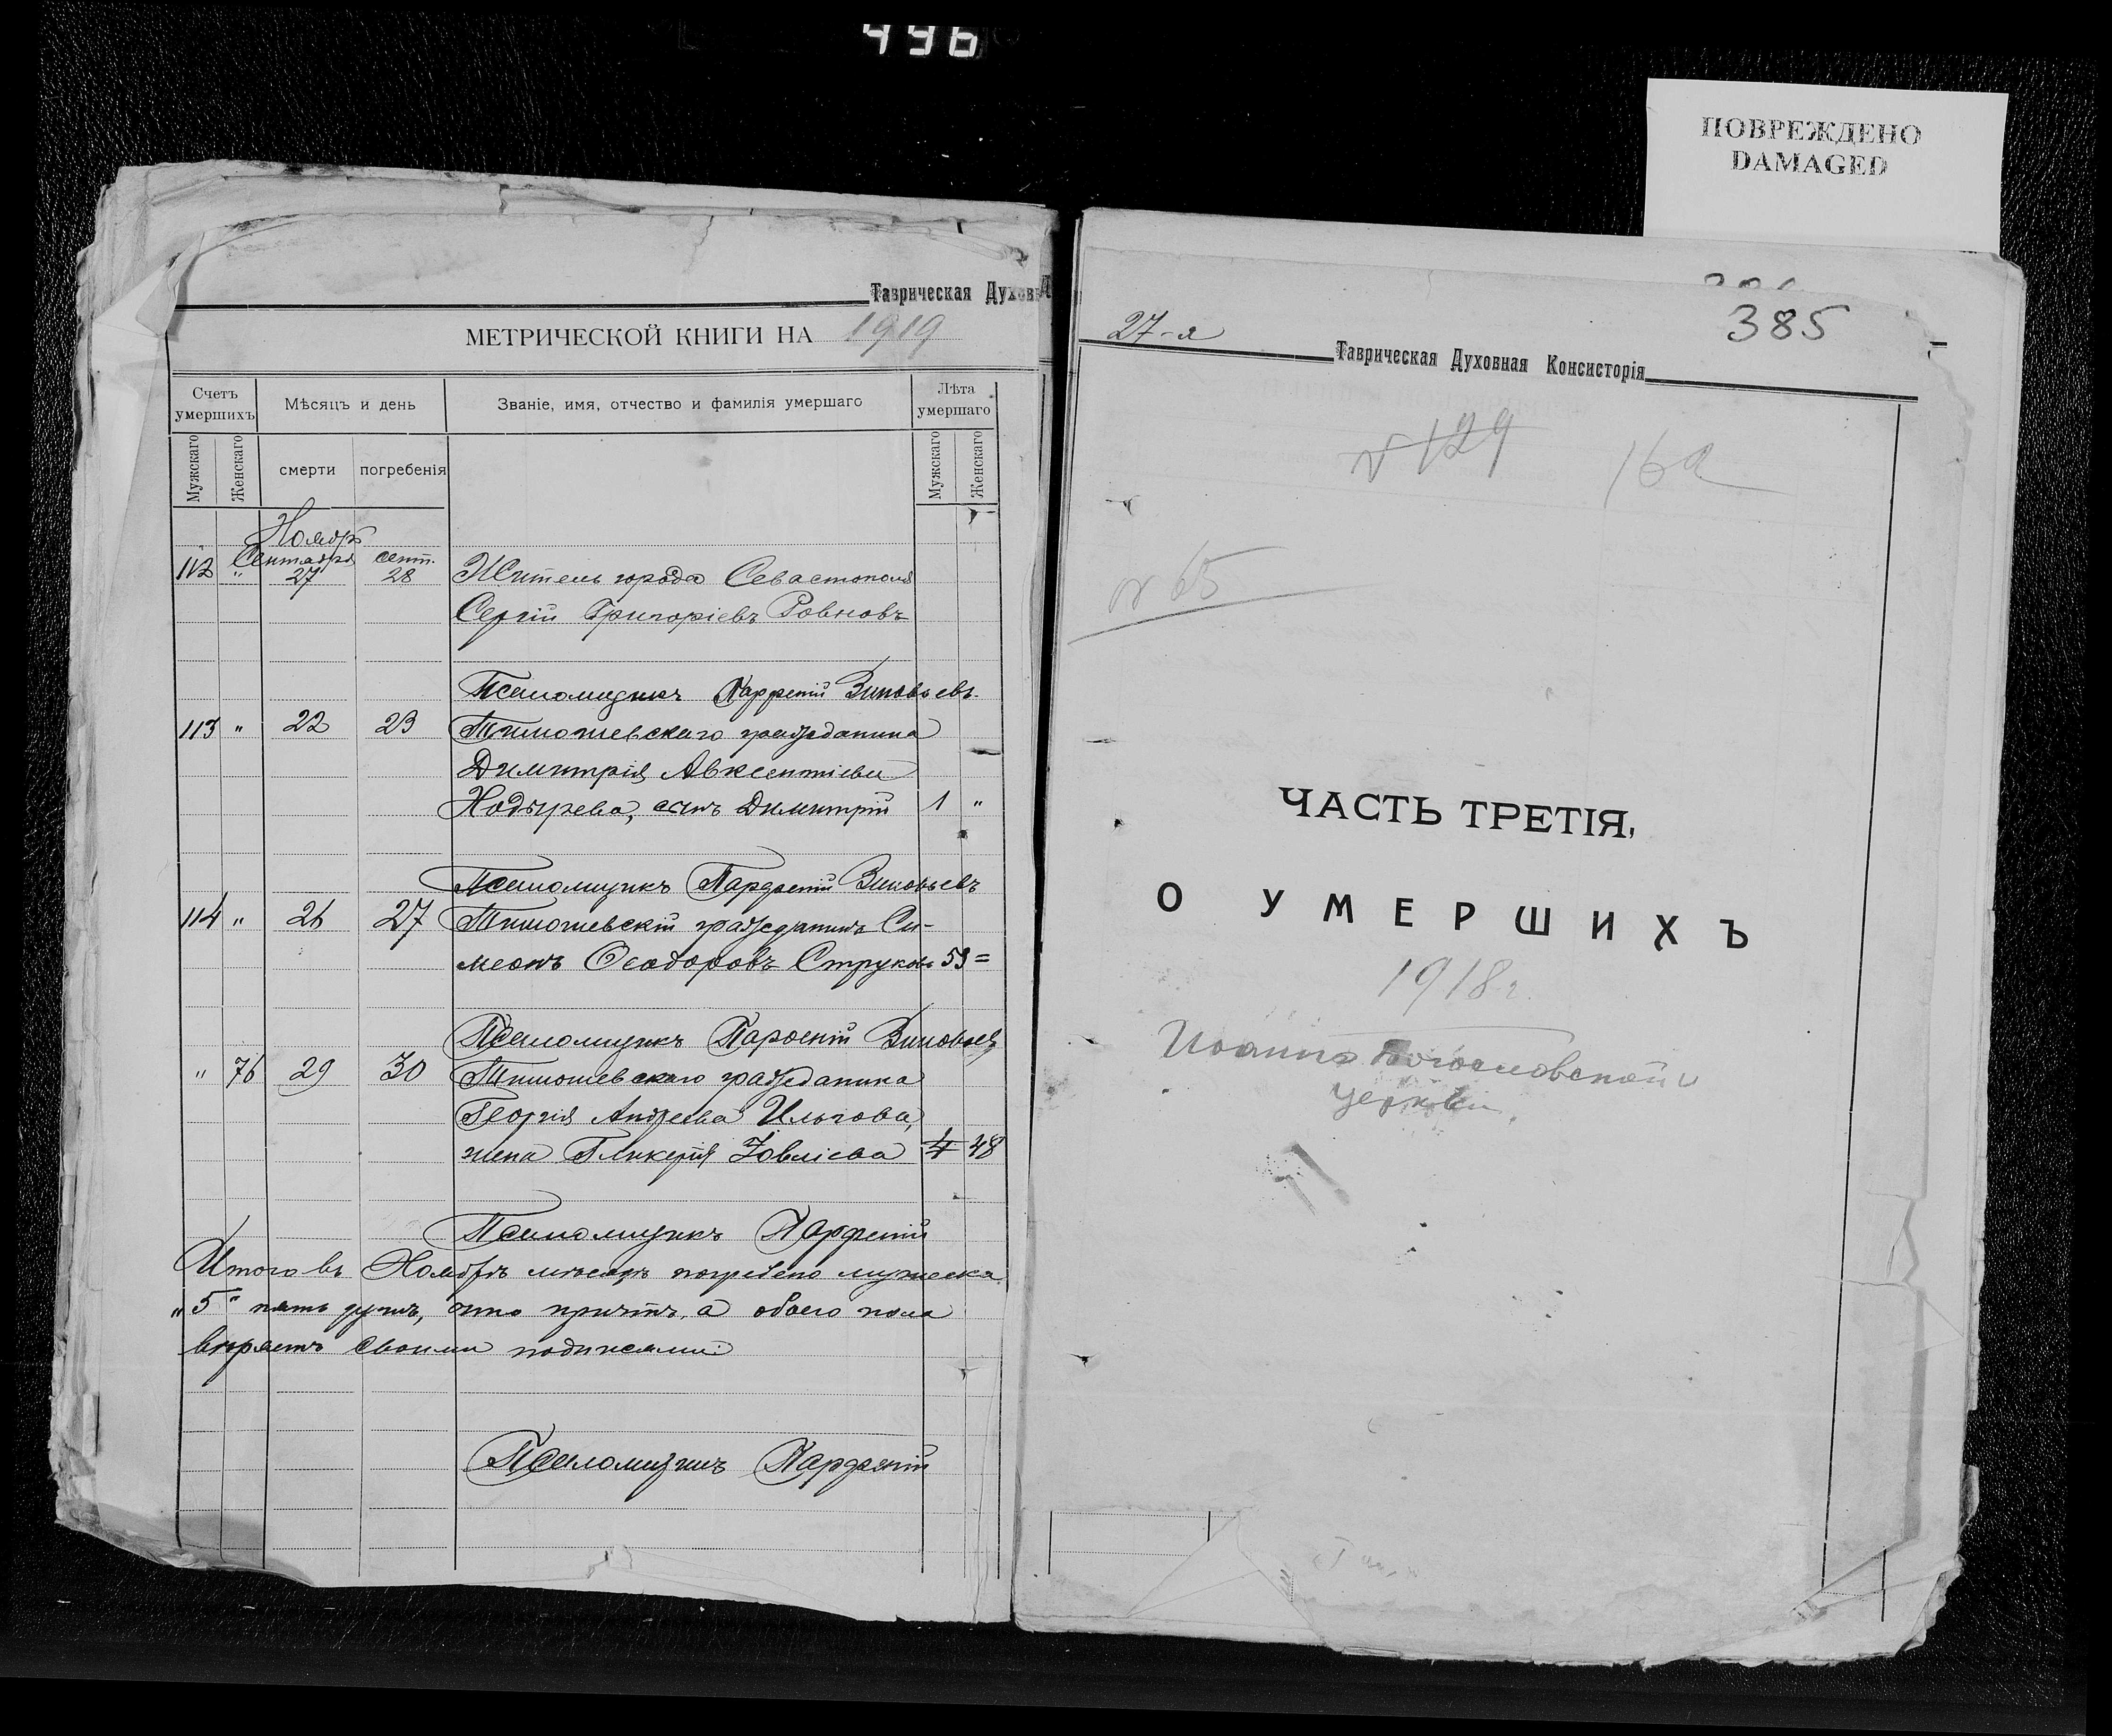 496
ПОВРЕЖДЕНО
DAMAGED
Таврическая Духовн
МЕТРИЧЕСКОЙ КНИГИ НА 1919
Счетъ умершихъ
Мѣсяцъ и день
Званіе, имя, отчество и фамилія умершаго
Лѣта умершаго
Мужскаго
Женскаго
смерти
погребенія
Мужскаго
Женскаго
Ноябрь
Сентября сент.
112 " 27 28 Житель города Севастополя
Сергій Григоріевъ Ровновъ
Псаломщикъ Парфеній Зиновьевъ
113 " 22 23 Тимошевскаго гражданина
Димитрія Авксентіева
сынъ Димитрій 1 "
Псаломщикъ Парфеній Зиновьевъ
114 " 26 27 Тимошевскій гражданинъ Си-
меонъ Ѳеодоровъ Струковъ 59 =
Псаломщикъ Парѳеній Зиновьевъ
" 76 29 30 Тимошевскаго гражданина
Георгія Андреева
жена Гликерія Іовліева 48
Псаломщикъ Парфеній
Итого въ Ноябрѣ мѣсяцѣ погребено мужеска
"5" пять душъ, что причтъ, а обоего пола
вѣряетъ своими подписями:
Псаломщикъ Парфеній
385
27-я
Таврическая Духовная Консисторія
№ 129
№ 65
ЧАСТЬ ТРЕТІЯ,
О УМЕРШИХЪ
1918 г.
Иоанно Богословской
церкви